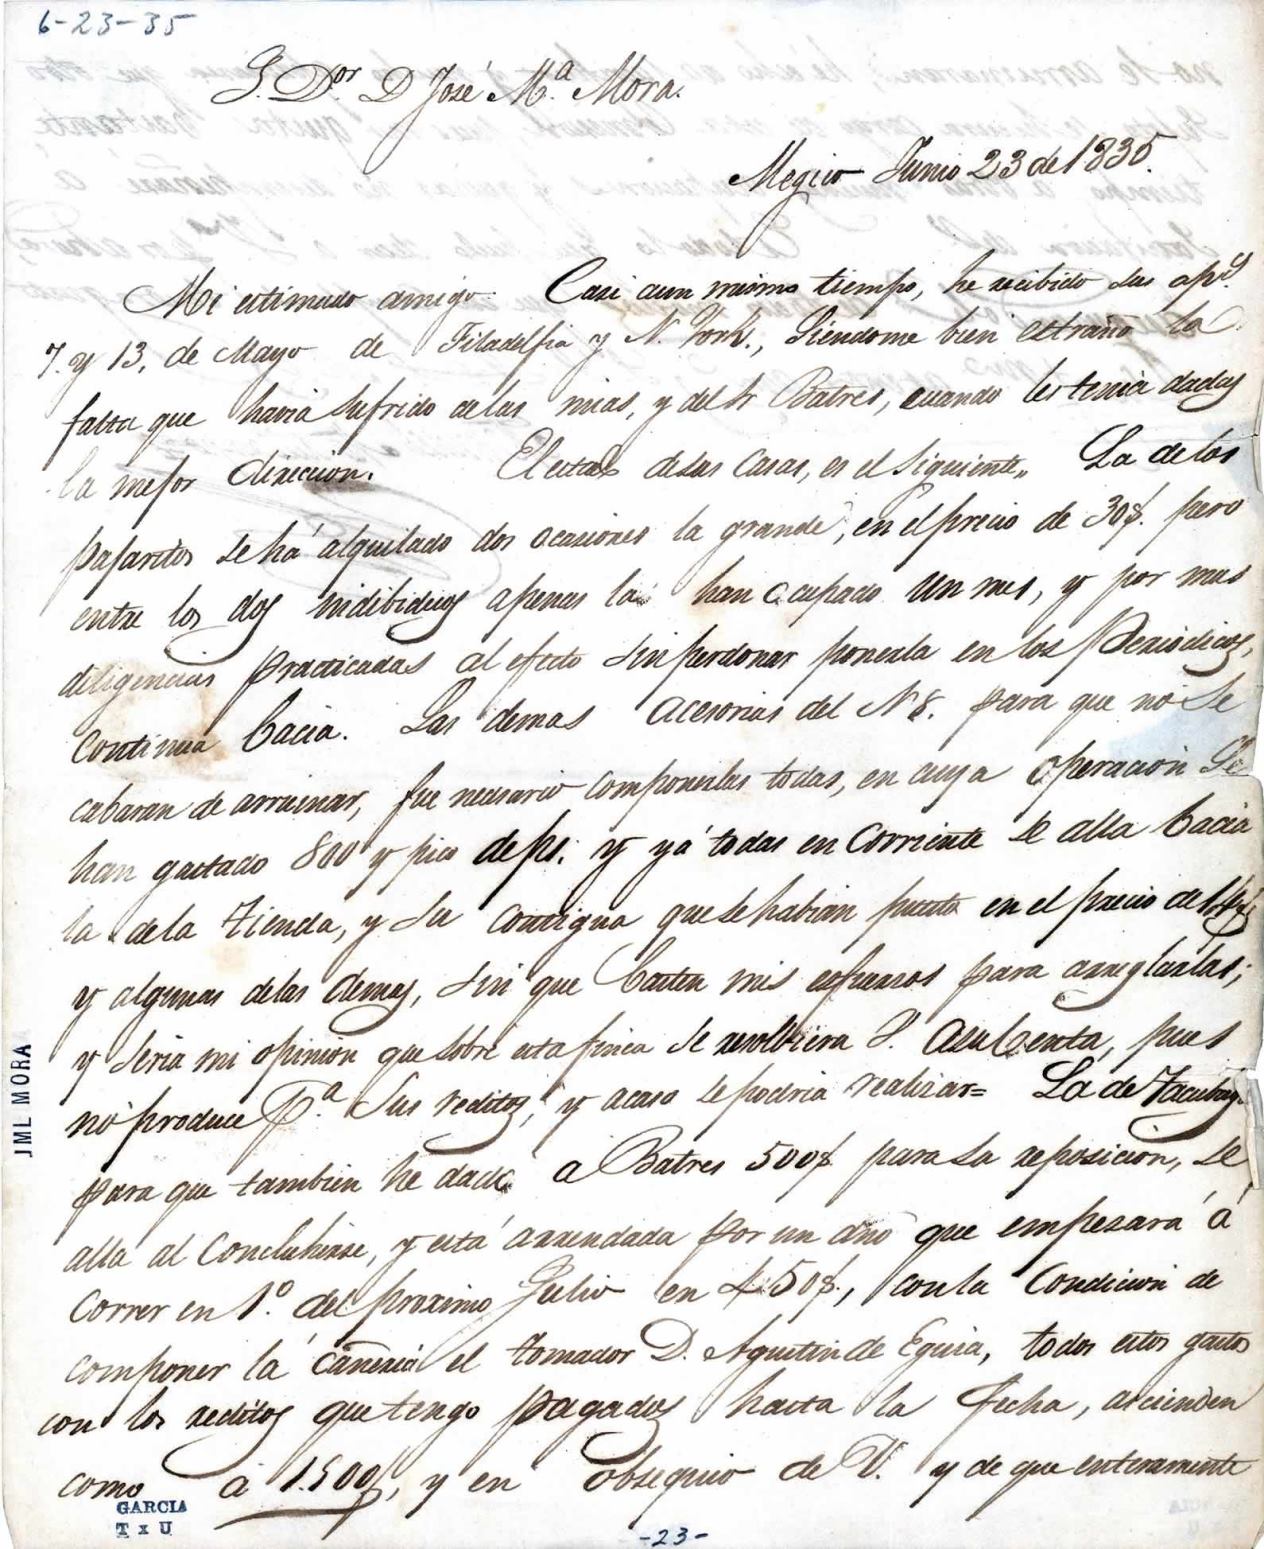 6-23-35
S. Dor. D José Ma. Mora.
Megico Junio 23 de 1835.
Mi estimado amigo Casi aun mismo tiempo, he recibido sus aps.
7. y 13, de Mayo de Filadelfia y N. York., siendome bien estraño la
falta que havia sufrido delas mias, y del Sr Batres, cuando les tenia dadas
la mejor direccion. El estado desus Casas, es el siguiente,, La de los
pajaritos se há alquilado dos ocasiones la grande, en el precio de 30$. pero
entre los dos indibiduos apenas la han ocupado un mes, y por mas
diligencias practicadas al efecto sin perdonar ponerla en los Periodicos,
continua bacia. Las demas acesorias del N 8. para que no se
cabaran de arruinar, fue necesario componerlas todas, en cuya operacion se
han gastado 800 y pico de ps. y yá todas en corriente se alla bacia
la dela tienda, y su contigua que se habian puesto en el precio de
y algunas delas demas, sin que basten mis esfuersos para arreglarlas;
y seria mi opinion que sobre esta finca se resolbiera V. asu benta, pues
no produce pa. sus reditos, y acaso se podria realizar= La de Tacubaya.
para que tambien he dado a Batres 500$. para su reposicion, se
alla al concluhirse, y está arrendada por un año que empesará á
correr en 1o. del proximo Julio en 450$., con la condicion de
componer la cañeria el tomador D. Agustin de Eguia, todos estos gastos
con los reditos que tengo pagados hasta la fecha, ascienden
como a 1.500$, y en obsequio de V. y de que enteramente
JML MORA
GARCIA
T x U
-23-